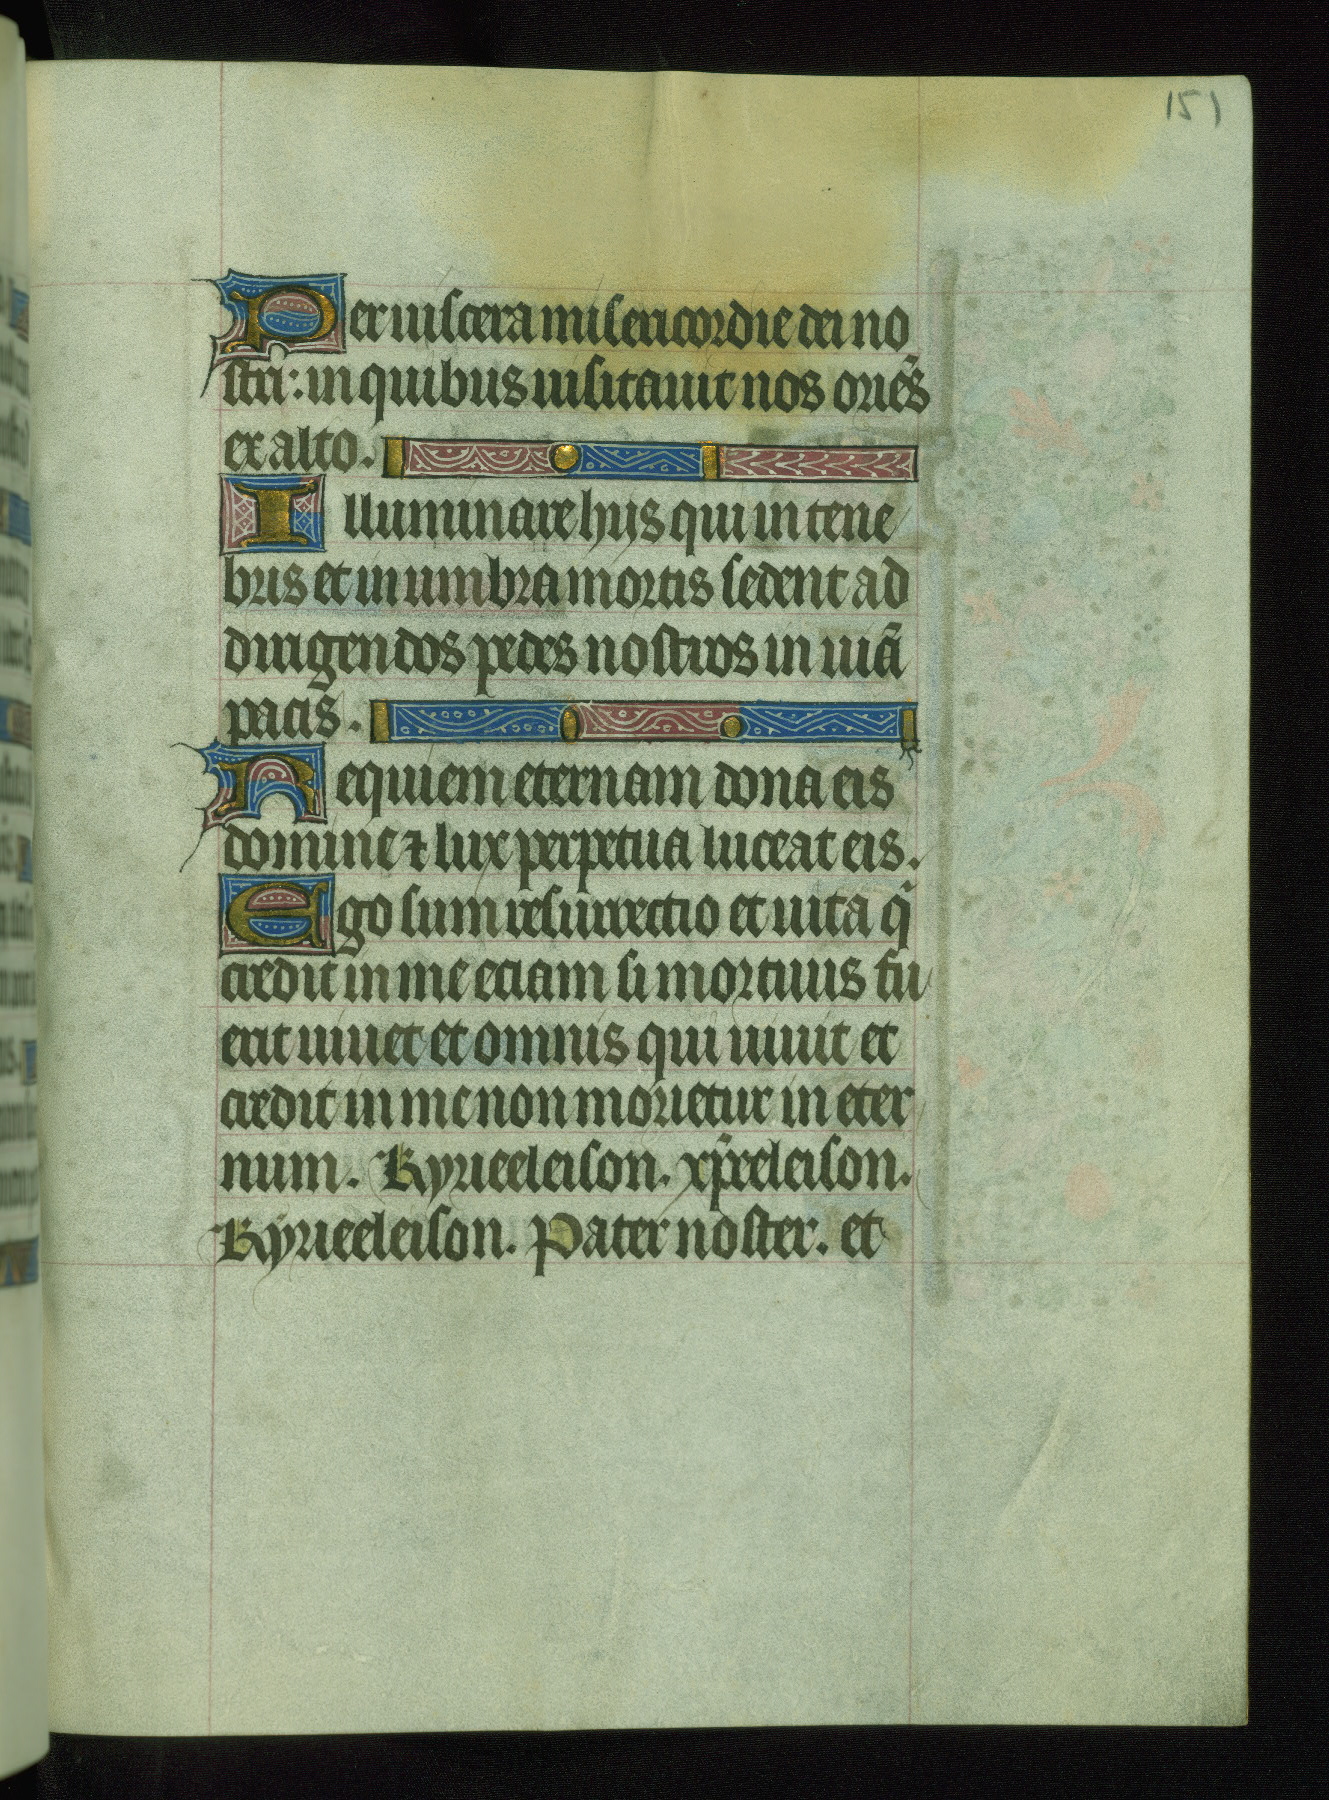 151
Per uiscera misericordie dei no
stri: in quibus uisitauit nos oriēs
ex alto.
Illuminare hijs qui in tene
bris et in umbra mortis sedent ad
dirigendos pedes nostros in uiā
pacis.
Requiem eternam dona eis
domine ⁊ lux perpetua luceat eis.
Ego sum resurrectio et uita q̄
credit in me eciam si mortuus fu
erit uiuet et omnis qui uiuit et
credit in me non morietur in eter
num. Kyrieeleison. xp̄eeleison.
Kyrieeleison. Pater noster. et